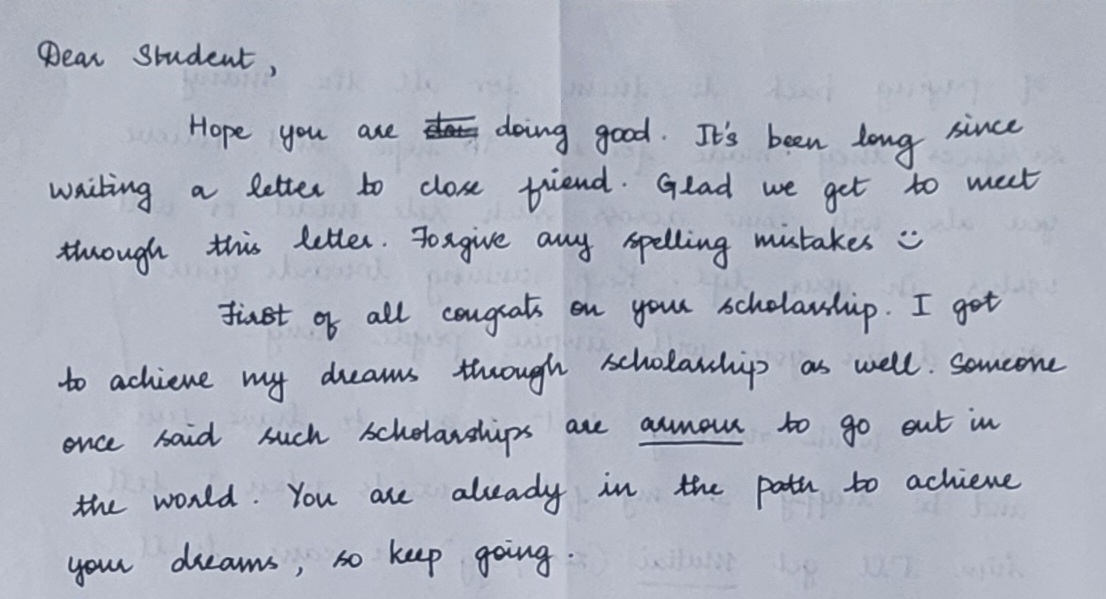 Dear Student,
Hope you are doing good. It's been long since
writing a letter to close friend. Glad we get to meet
through this letter. Forgive any spelling mistakes
First of all congrats on your scholarship. I got
to achieve my dreams through scholarship as well. Someone
once said such scholarships are armour to go out in
the world. You are already in the path to achieve
your dreams, so keep going.